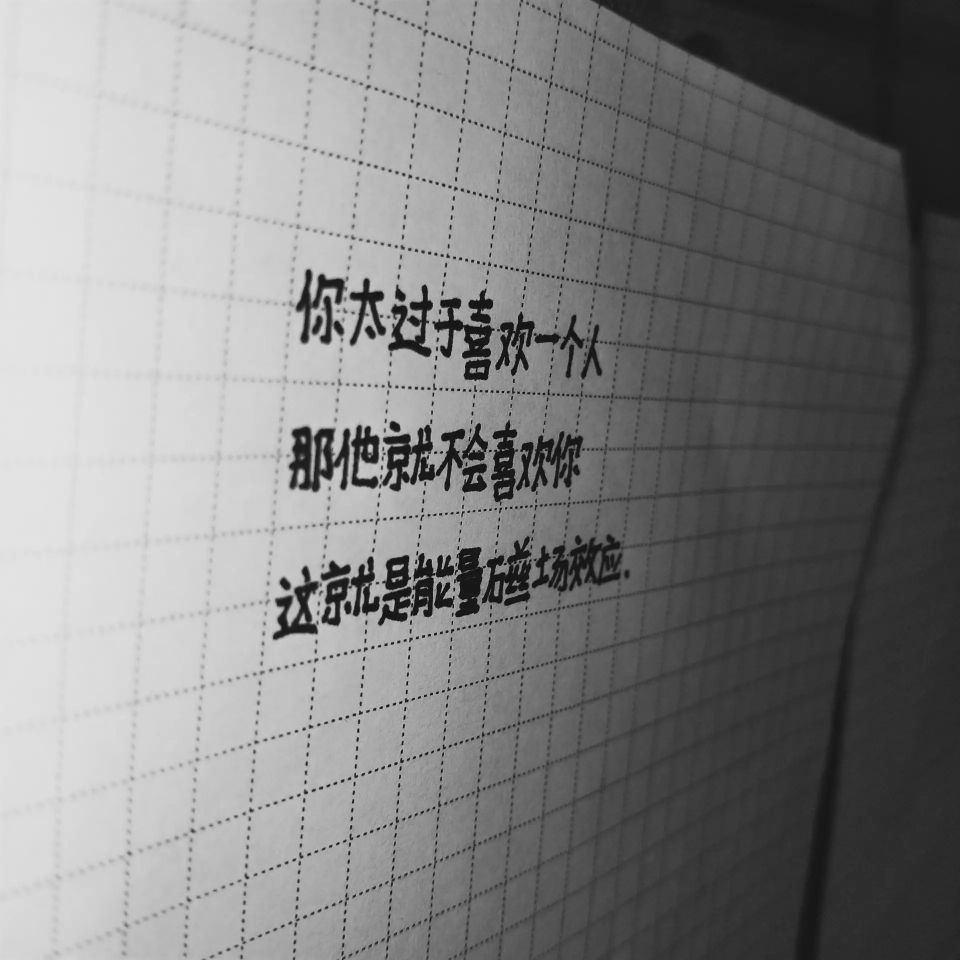 你太过于喜欢一个人
那他就不会喜欢你
这就是能量磁场效应.